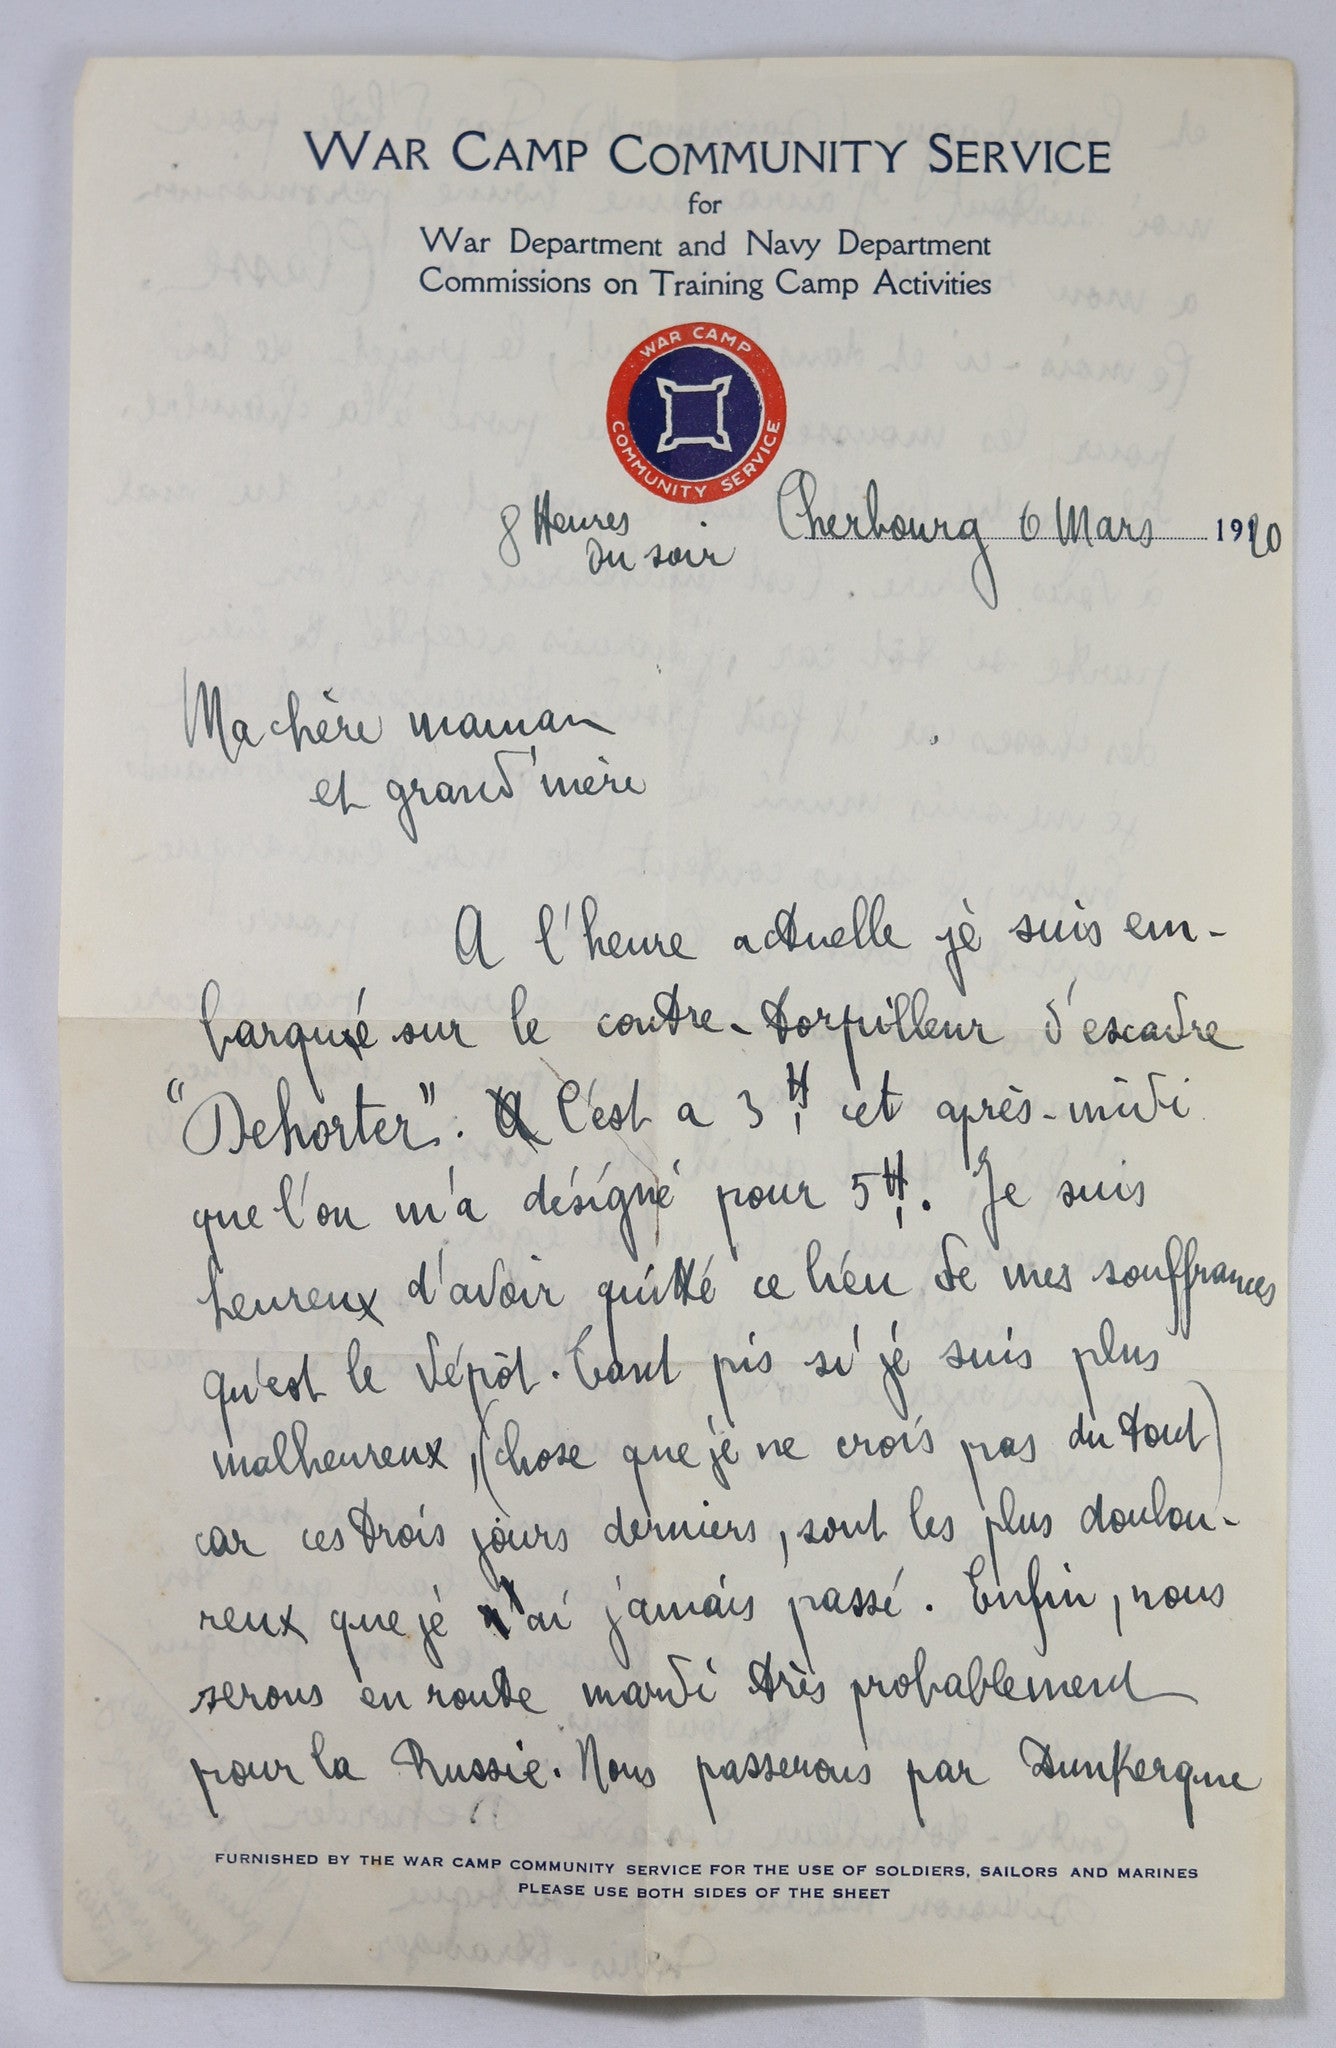 WAR CAMP COMMUNITY SERVICE
for
War Department and Navy Department
Commissions on Training Camp Activities
WAR CAMP
COMMUNITY SERVICE
8 Heures
du soir
Cherbourg 6 Mars 1920
Ma chère maman
et grand'mère
A l'heure actuelle je suis em-
barqué sur le contre-torpilleur d'escadre
"Dehorter". C'est a 3 H cet après-midi
que l'on m'a désigné pour 5 H. Je suis
heureux d'avoir quitté ce lieu de mes souffrances
qu'est le dépôt. Tant pis si je suis plus
malheureux, (chose que je ne crois pas du tout)
car ces trois jours derniers, sont les plus doulou-
reux que je n'ai jamais passé. Enfin, nous
serons en route mardi très probablement
pour la Russie. Nous passerons par Dunkerque
FURNISHED BY THE WAR CAMP COMMUNITY SERVICE FOR THE USE OF SOLDIERS, SAILORS AND MARINES
PLEASE USE BOTH SIDES OF THE SHEET